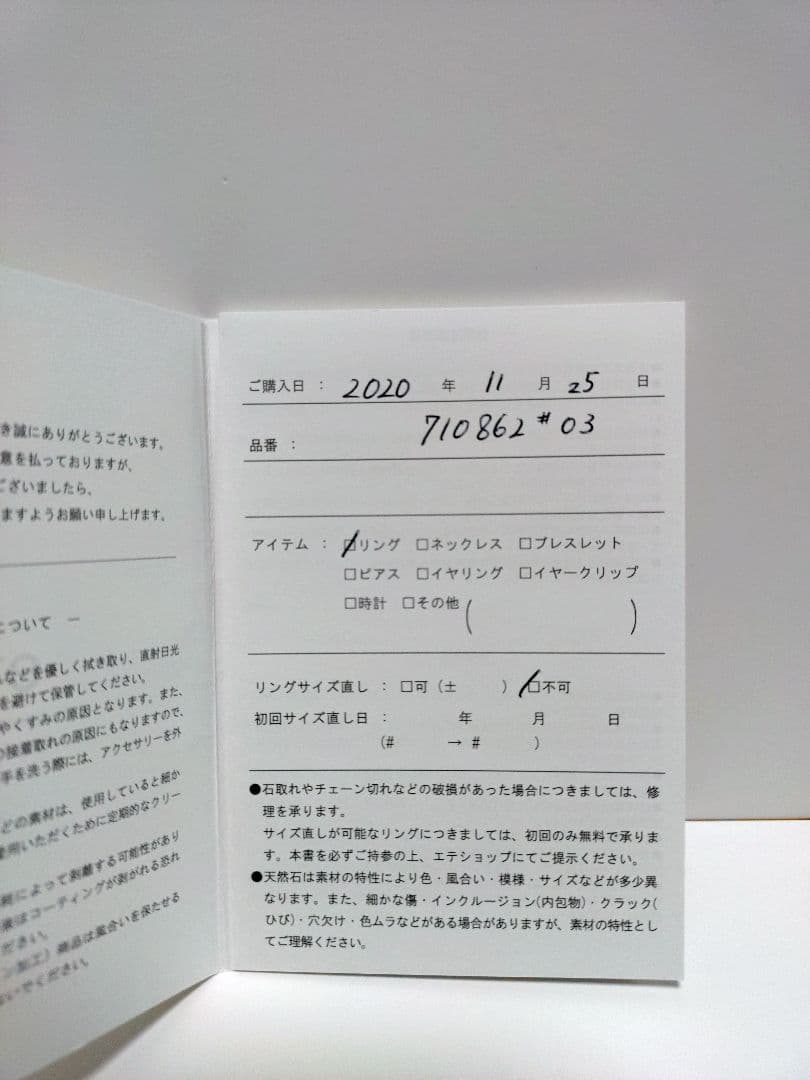 き誠にありがとうございます。
意を払っておりますが、
ございましたら、
ますようお願い申し上げます。
について —
などを優しく拭き取り、直射日光
を避けて保管してください。
やくすみの原因となります。また、
接着取れの原因にもなりますので、
手を洗う際には、アクセサリーを外
どの素材は、使用していると細か
用いただくために定期的なクリー
によって剥離する可能性があり
はコーティングが剥がれる恐れ
ださい。
ン加工）商品は風合いを保たせる
いでください。
ご購入日 : 2020 年 11 月 25 日
品番 : 710862 #03
アイテム : □リング □ネックレス □ブレスレット
□ピアス □イヤリング □イヤークリップ
□時計 □その他 ( )
リングサイズ直し : □可 (± ) □不可
初回サイズ直し日 : 年 月 日
(# → # )
●石取れやチェーン切れなどの破損があった場合につきましては、修
理を承ります。
サイズ直しが可能なリングにつきましては、初回のみ無料で承りま
す。本書を必ずご持参の上、エテショップにてご提示ください。
●天然石は素材の特性により色・風合い・模様・サイズなどが多少異
なります。また、細かな傷・インクルージョン(内包物)・クラック(
ひび)・穴欠け・色ムラなどがある場合がありますが、素材の特性とし
てご理解ください。